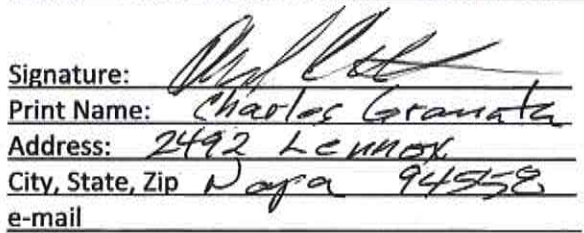 Signature:
Print Name: Charles Granata
Address: 2492 Lennox
City, State, Zip Napa 94558
e-mail